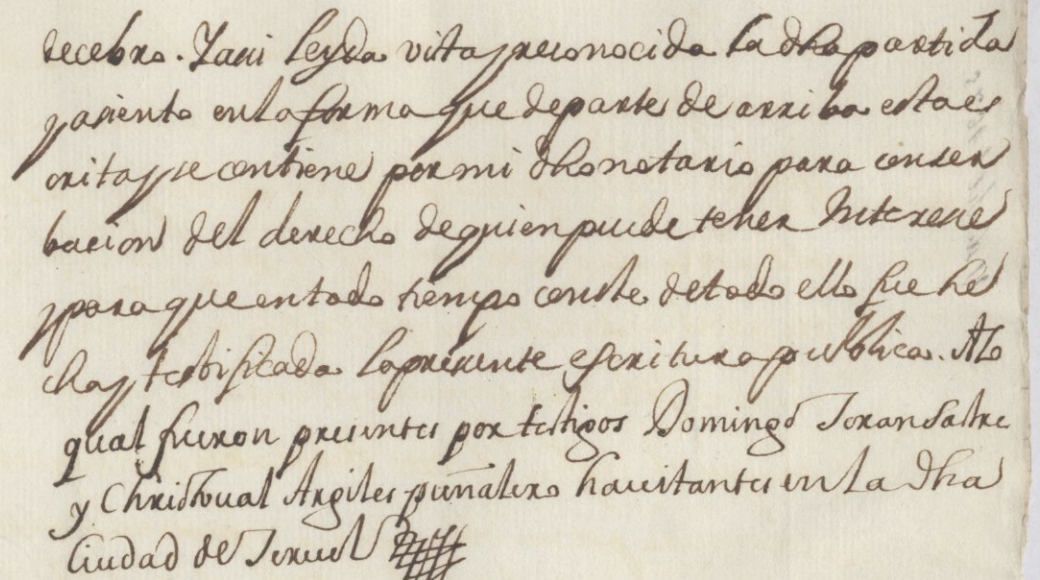 decebro. Y assi leyda vista y reconocida la dha partida
y asiento en la forma que de parte de arriba esta es
crita y se contiene por mi dho notario para conser
bacion del derecho de quien puede tener Interese
y para que en todo tiempo conste de todo ello fue he
cha y testificada la presente escritura publica. A lo
qual fueron presentes por testigos Domingo Joran Sastre
y Christoual Argiles puñalero hauitantes en la dha
Ciudad de Teruel